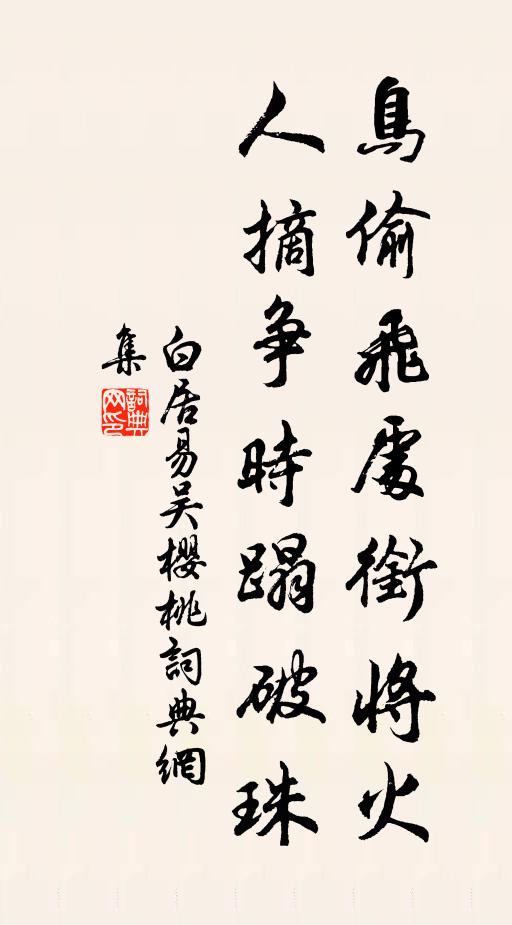 鳥偷飛處銜將火
人摘争時蹋破珠
白居易吴櫻桃詞典網
集
詞典
网印